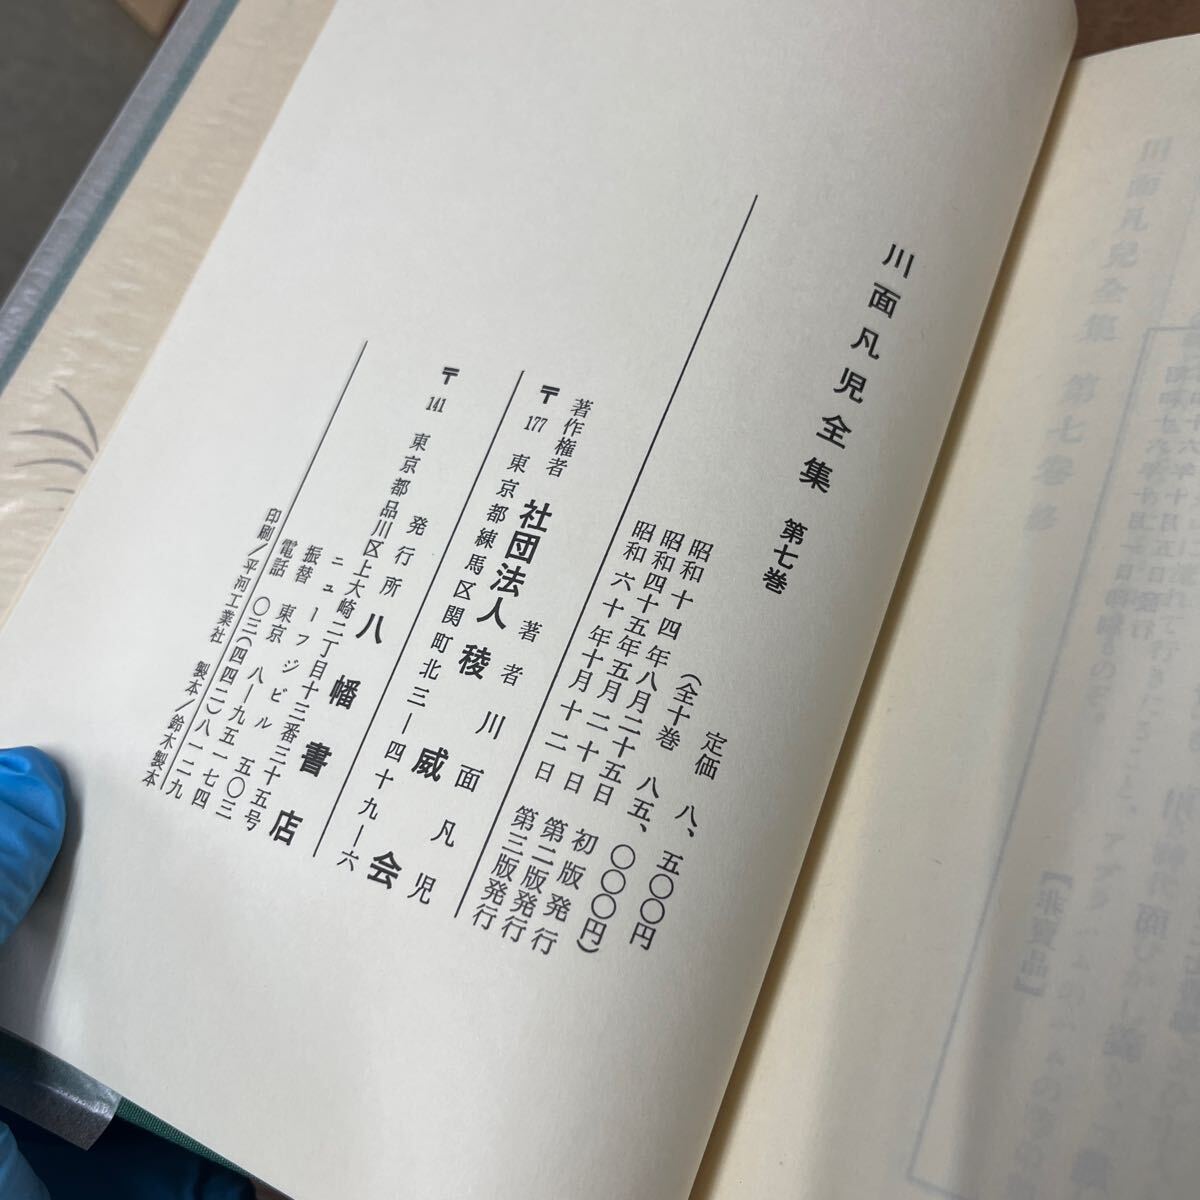 川面凡児全集　第七巻
定価　八、五〇〇円
（全十巻　八五、〇〇〇円）
昭和十四年八月二十五日　初版発行
昭和四十五年五月二十日　第二版発行
昭和六十年十月十二日　第三版発行
著者　川面凡児
著作権者　社団法人　稜威会
〒177　東京都練馬区関町北三ー四十九ー六
発行所　八幡書店
〒141　東京都品川区上大崎二丁目十三番三十五号
ニューフジビル　五〇三
振替　東京　八ー九五一七四
電話　〇三（四四二）八一二九
印刷／平河工業社　製本／鈴木製本
川面凡児全集　第七巻　終
【非売品】